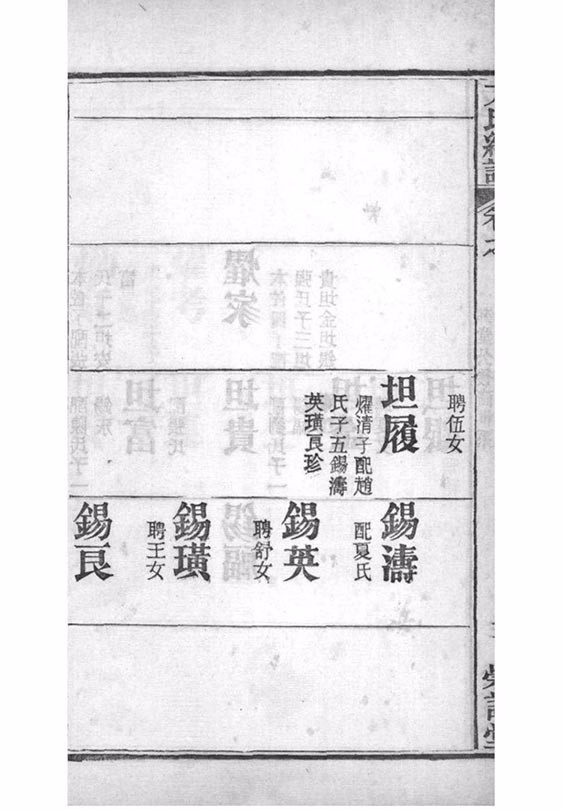 聘伍女
坦履
燿清子配趙
氏子五錫濤
英璜良珍
錫濤
配夏氏
錫英
聘舒女
錫璜
聘王女
錫良